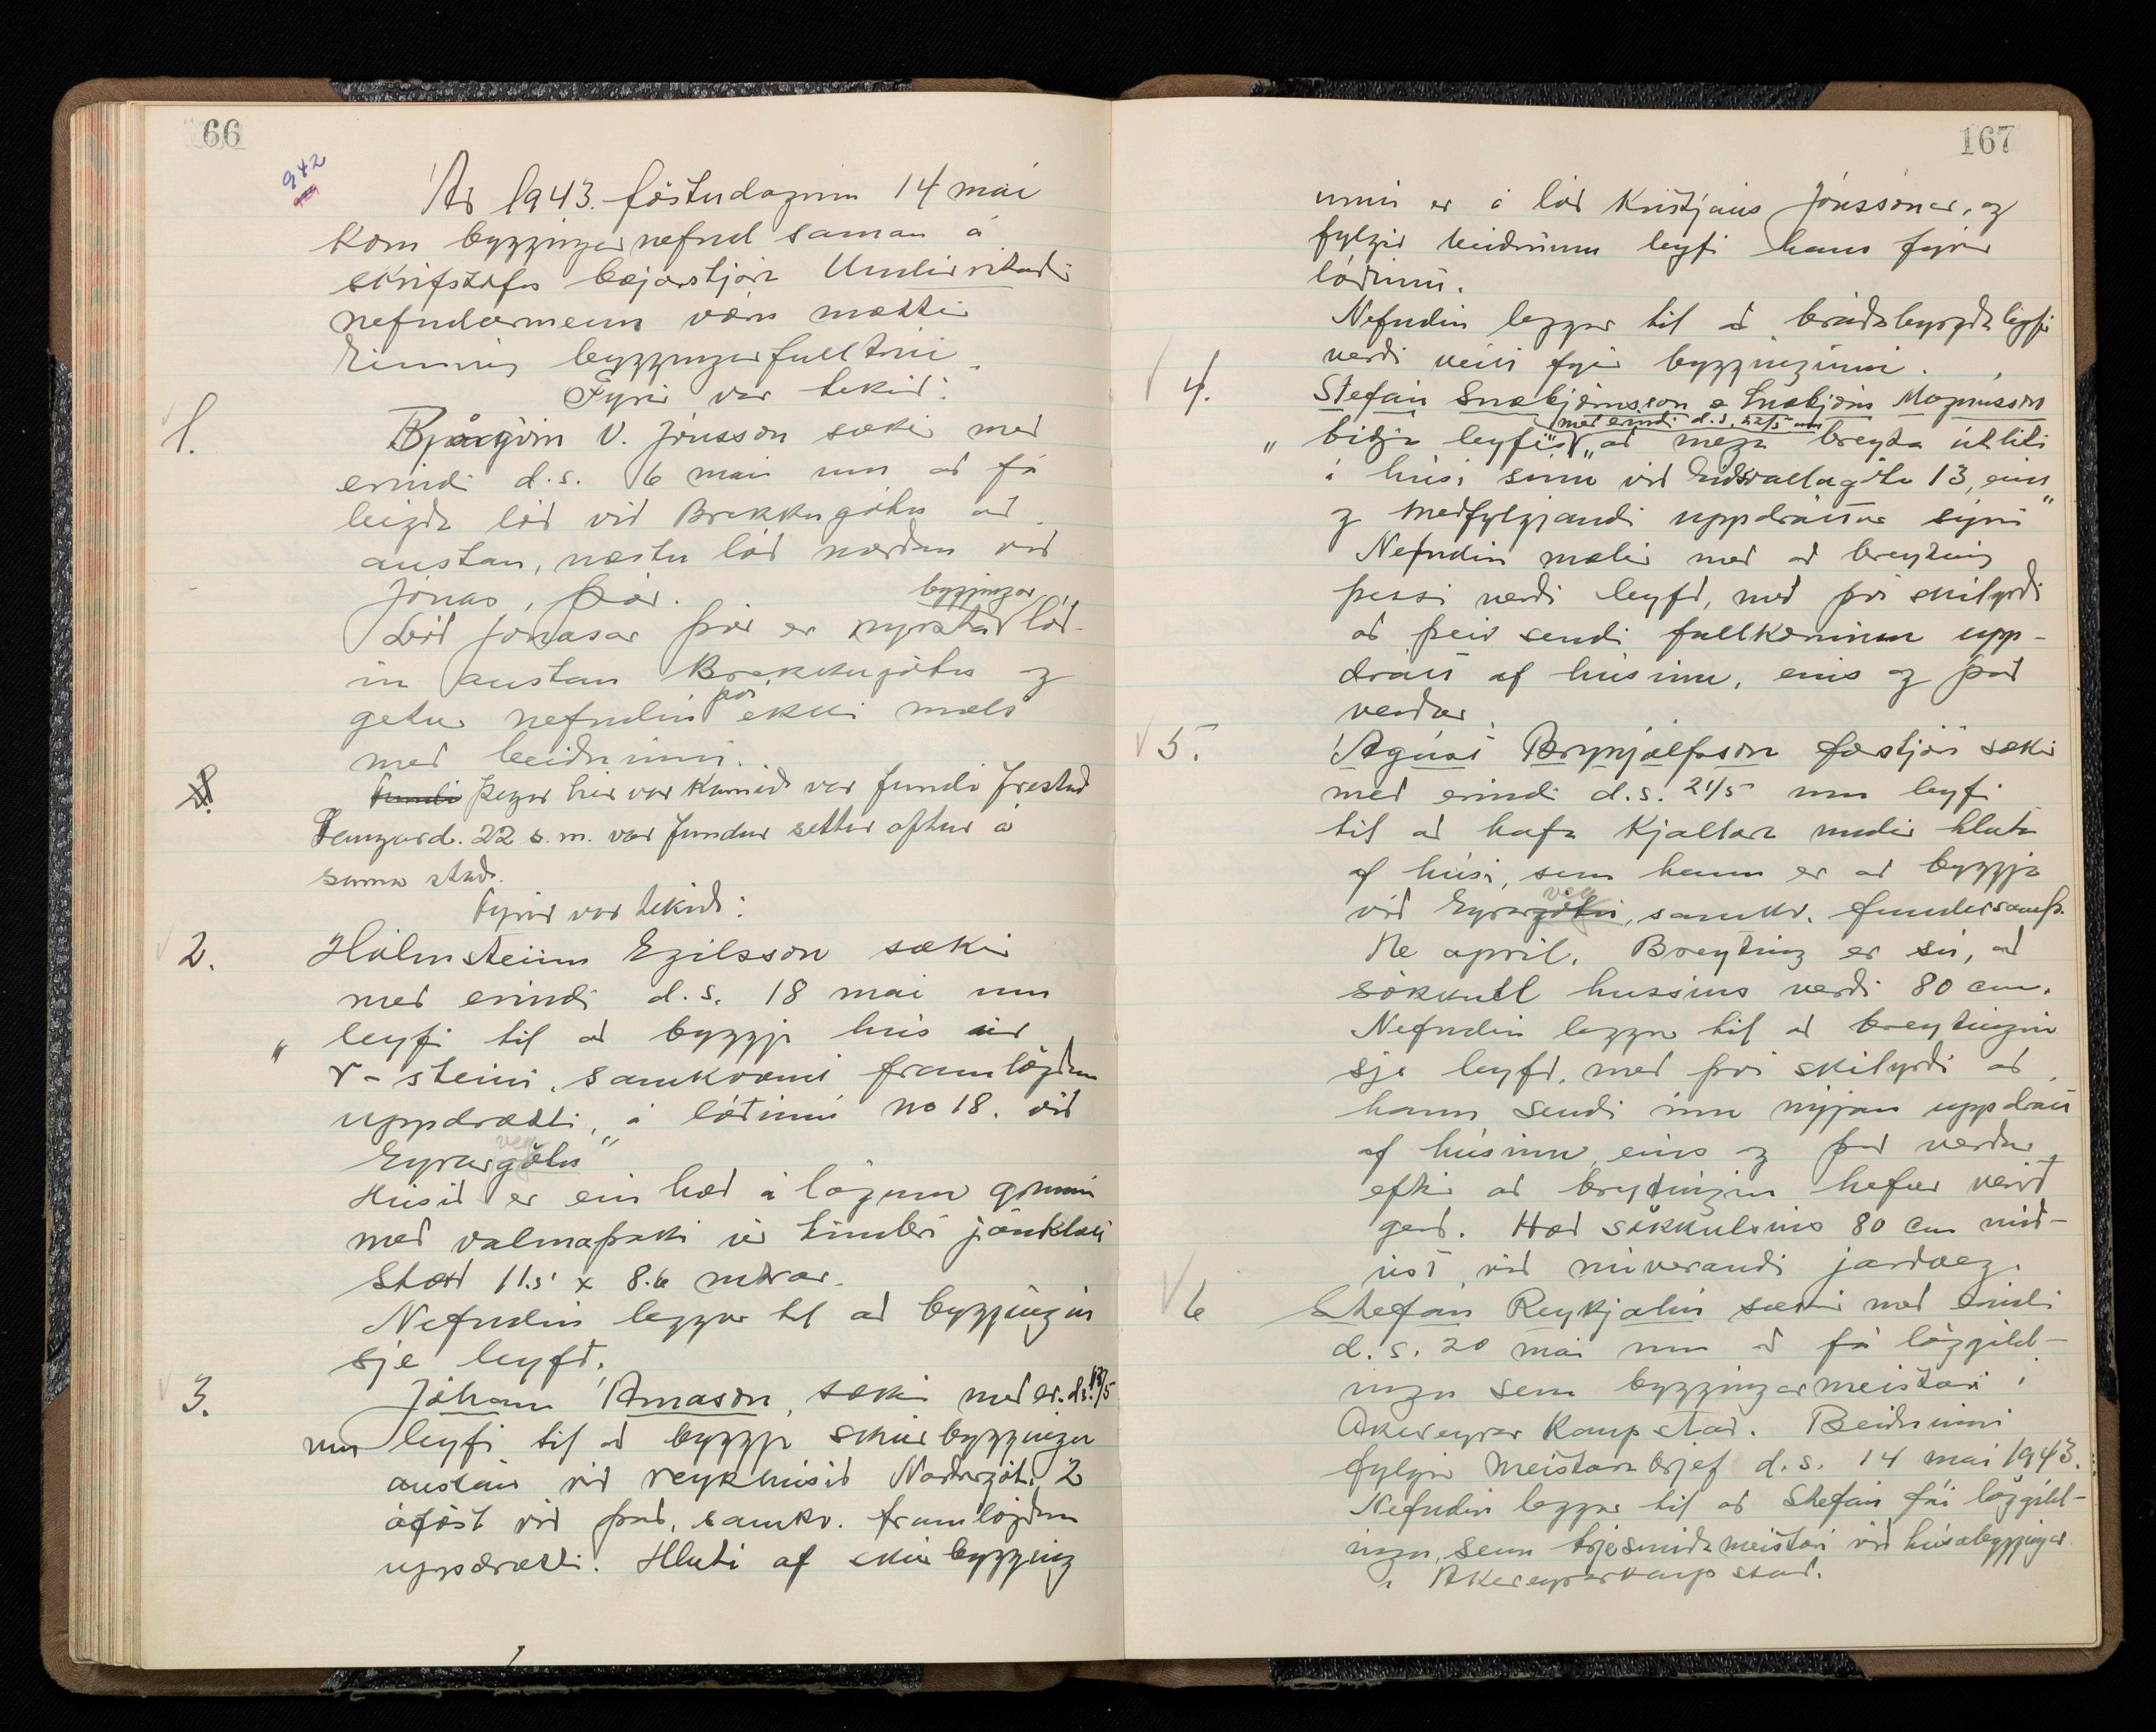 66
942
Ár 1943. föstudaginn 14 maí
kom byggingarnefnd saman á
skrifstofu bæjarstjóra Undirritaðir
nefndarmenn vóru mættir
Einnig byggingarfulltrúi.
Fyrir var tekið:
1.
V. Jónsson sækir með
erindi d.s. 6 maí um að fá
leigða lóð við Brekkugötu að
austan, næstu lóð norðan við
Jónas Þór.
byggingar
Lóð Jónasar Þór er nyrsta lóð-
in austan Brekkugötu og
þór
getur nefndin ekki mælt
með beiðninni.
Fundi Þegar hér var komið var fundi frestað
Laugard. 22 s.m. var fundur settur aftur á
sama stað.
Fyrir var tekið:
2.
Hólmsteinn Egilsson sækir
með erindi d.s. 18 maí um
„ leyfi til að byggja hús úr
r-steini, samkvæmt framlögðum
uppdrætti, á lóðinni no 18. við
veg
Eyrargötu"
Húsið er ein hæð á lágum grunni
með valmaþaki úr timbri járnklætt
Stærð 11.5 x 8.6 metrar.
Nefndin leggur til að byggingin
sje leyfð.
3.
Jóhann Árnason, sækir með er. d.s. 13/5
um leyfi til að byggja skúrbyggingu
austan við reykhúsið Norðurgötu 2
áföst við það, samkv. framlögðum
uppdrætti. Hluti af skúrbygging
167
unni er á lóð Kristjáns Jónssonar, og
fylgir beiðninni leyfi hans fyrir
lóðinni.
Nefndin leggur til að bráðabyrgðaleyfi
verði veitt fyrir byggingunni.
4.
Stefán Snæbjörnsson & Snæbjörn Magnússon
með erindi d.s. 22/5 um
„ biðja leyfis „að mega breyta útliti
á húsi sínu við Eiðsvallagötu 13, eins
og meðfylgjandi uppdráttur sýnir"
Nefndin mælir með að breyting
þessi verði leyfð, með því skilyrði
að þeir sendi fullkominn upp-
drátt af húsinu, eins og það
verður.
5.
Ágúst Brynjólfsson sækir
með erindi d.s. 21/5 um leyfi
til að hafa kjallara undir hluta
af húsi, sem hann er að byggja
veg
við Eyrargötu, samkv. fundarsamþ.
apríl. Breyting er sú, að
sökkull hússins verði 80 cm.
Nefndin leggur til að breytingin
sje leyfð, með því skilyrði að
hann sendi inn nýjan uppdrátt
af húsinu, eins og það verður
eftir að breytingin hefur verið
gerð. Hæð sökkulsins 80 cm mið-
ast við núverandi jarðveg.
6
Stefán Reykjalín sækir með erindi
d.s. 20 maí um að fá löggild-
ingu sem byggingarmeistari í
Akureyrar Kaupstað. Beiðninni
fylgir meistarabrjef d.s. 14 maí 1943.
Nefndin leggur til að Stefán fái löggild-
ingu, sem trjesmíðameistari við húsabyggingar
í Akureyrarkaupstað.